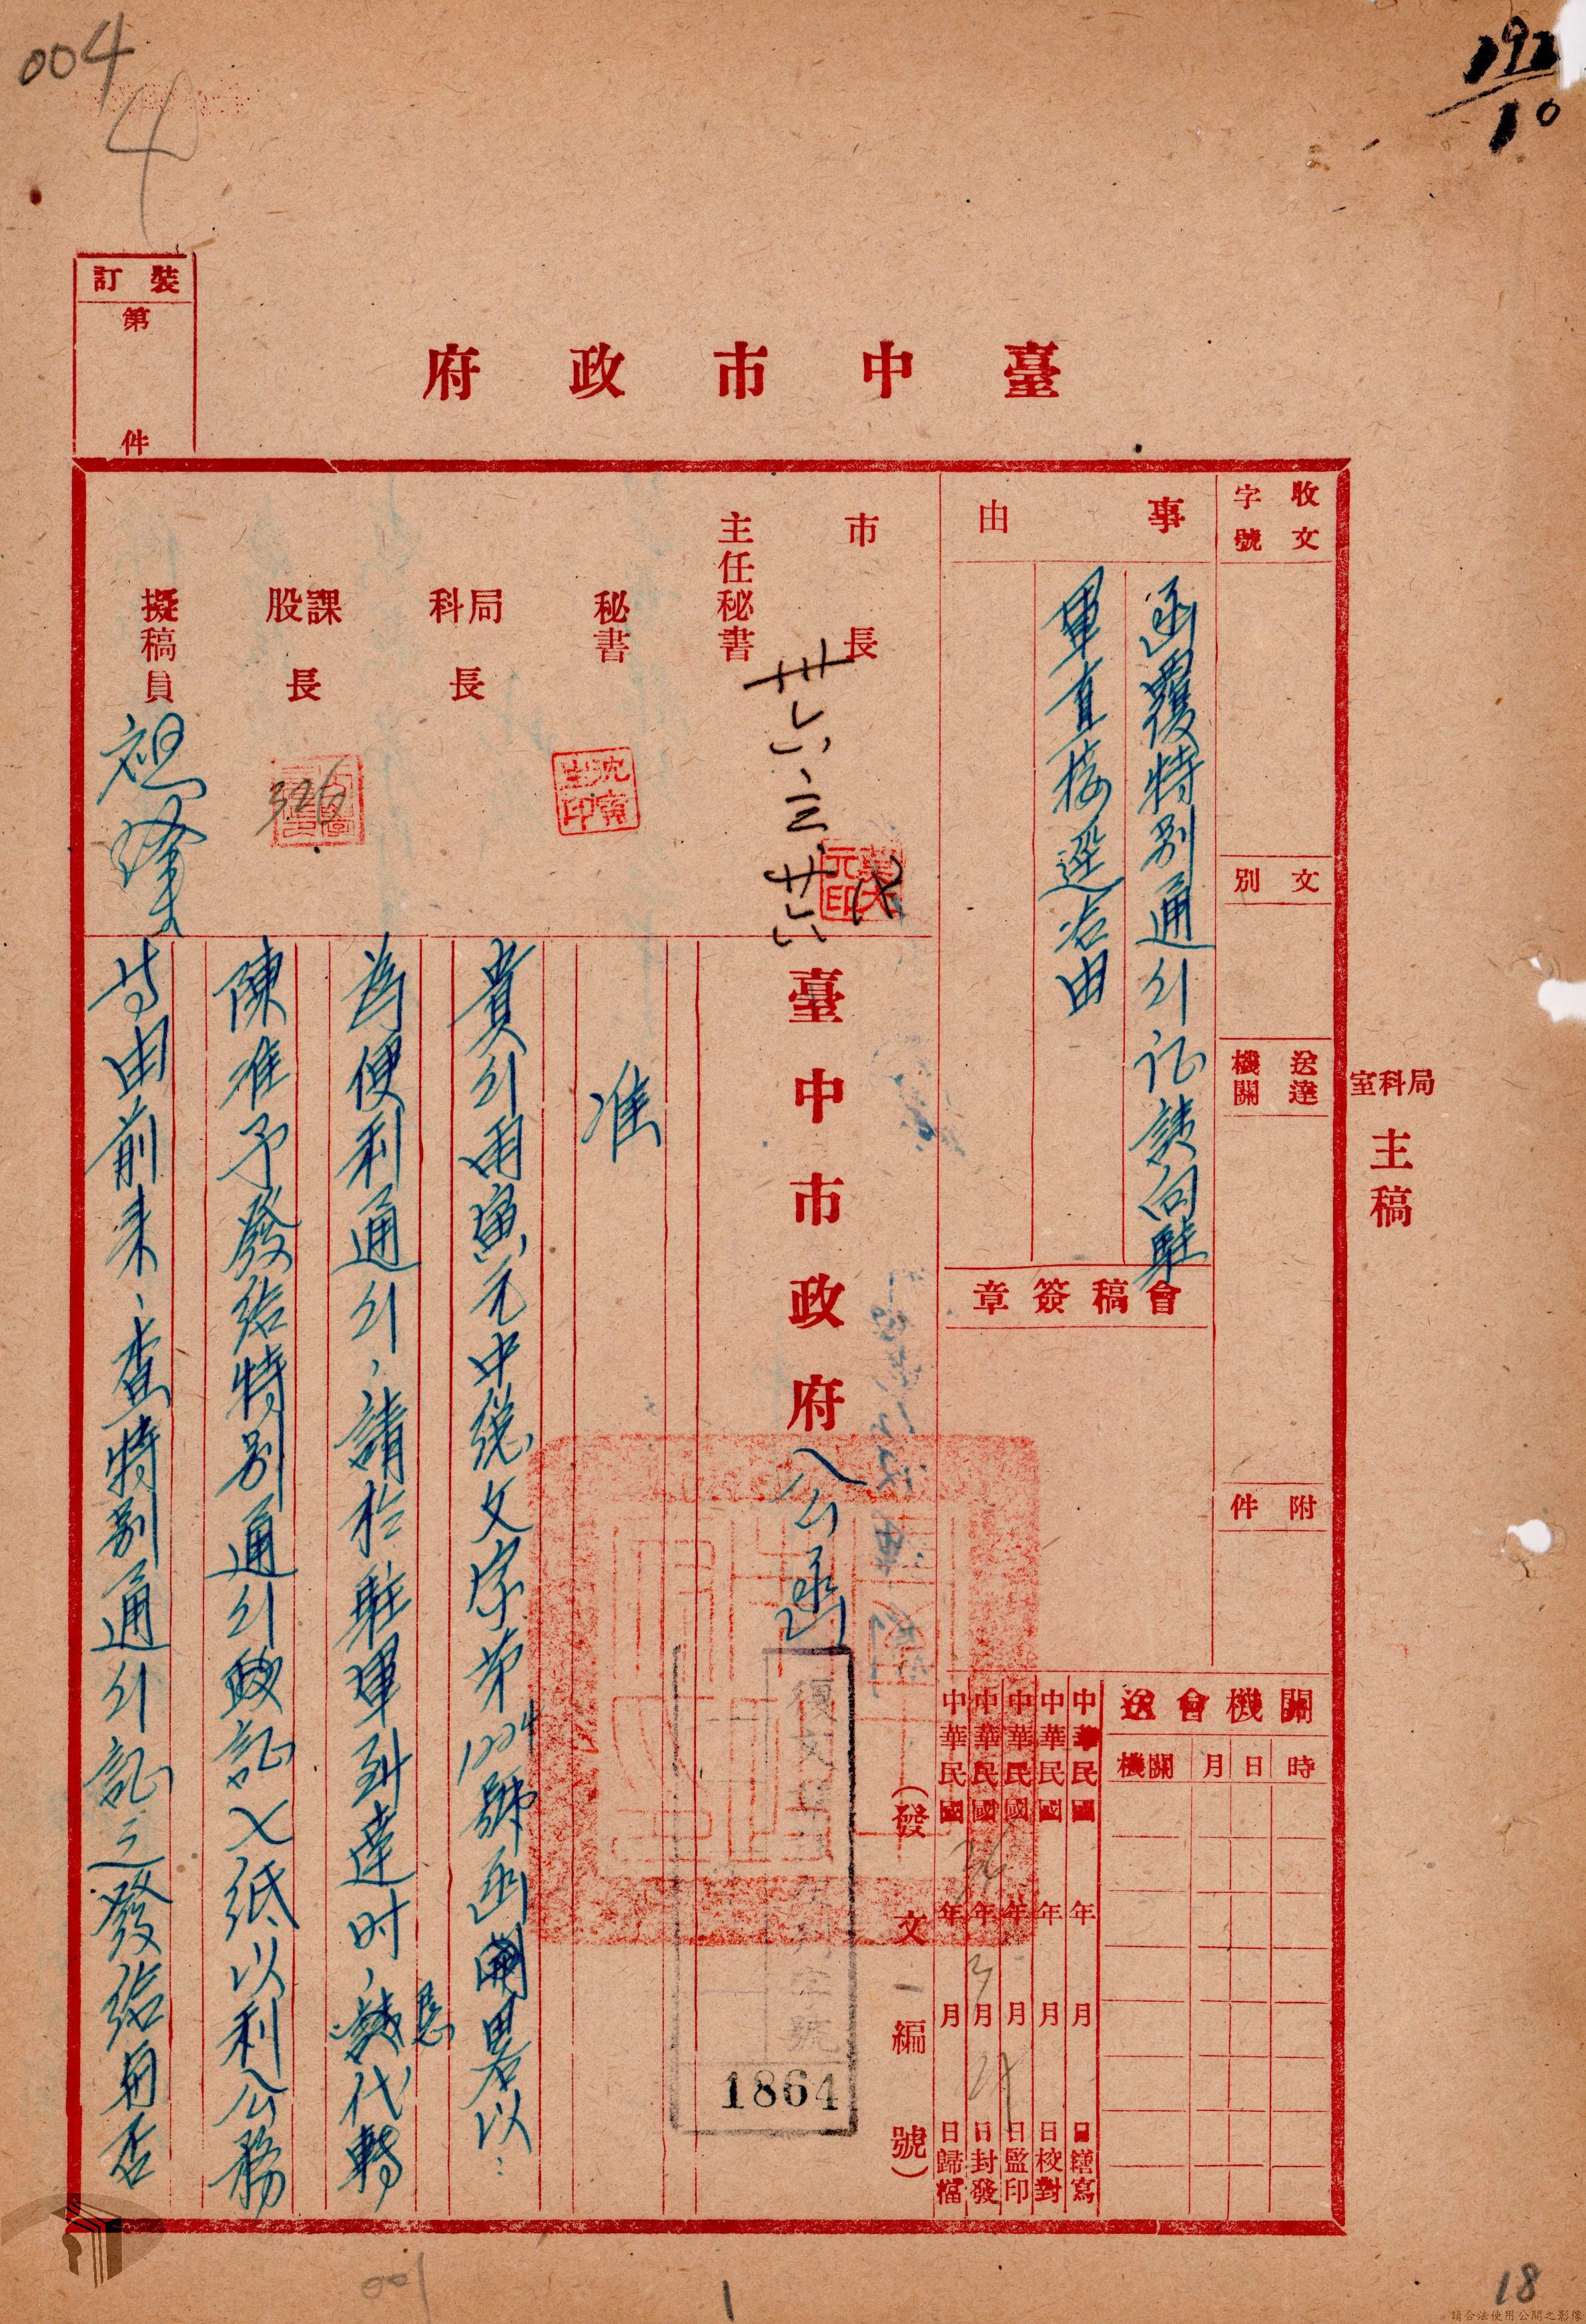 004
4
192
10
裝訂
第
件
臺中市政府
收文
字號
文別
送達
機關
附件
局科室
主稿
事由
函覆特別通行証請向駐
軍直接逕洽由
會稿簽章
關機會送
時日月機關
中華民國 年 月 日繕寫
中華民國 年 月 日校對
中華民國 年 月 日監印
中華民國 年 3月 27日封發
中華民國36年 月 日歸檔
市長
主任秘書
秘書
局科長
課股長
擬稿員
卅六、三、廿六
代
沈寅生印
3.26
臺中市政府
公函
(發文一編號)
復文
字號
1864
准
貴行兩寅元中總文字第1004號函開畧以:
為便利通行、請於駐軍到達時、懇代轉
陳准予發給特別通行証七紙以利公務
等由前來、查特別通行証之發給與否
001
1
18
請合法使用公開之影像